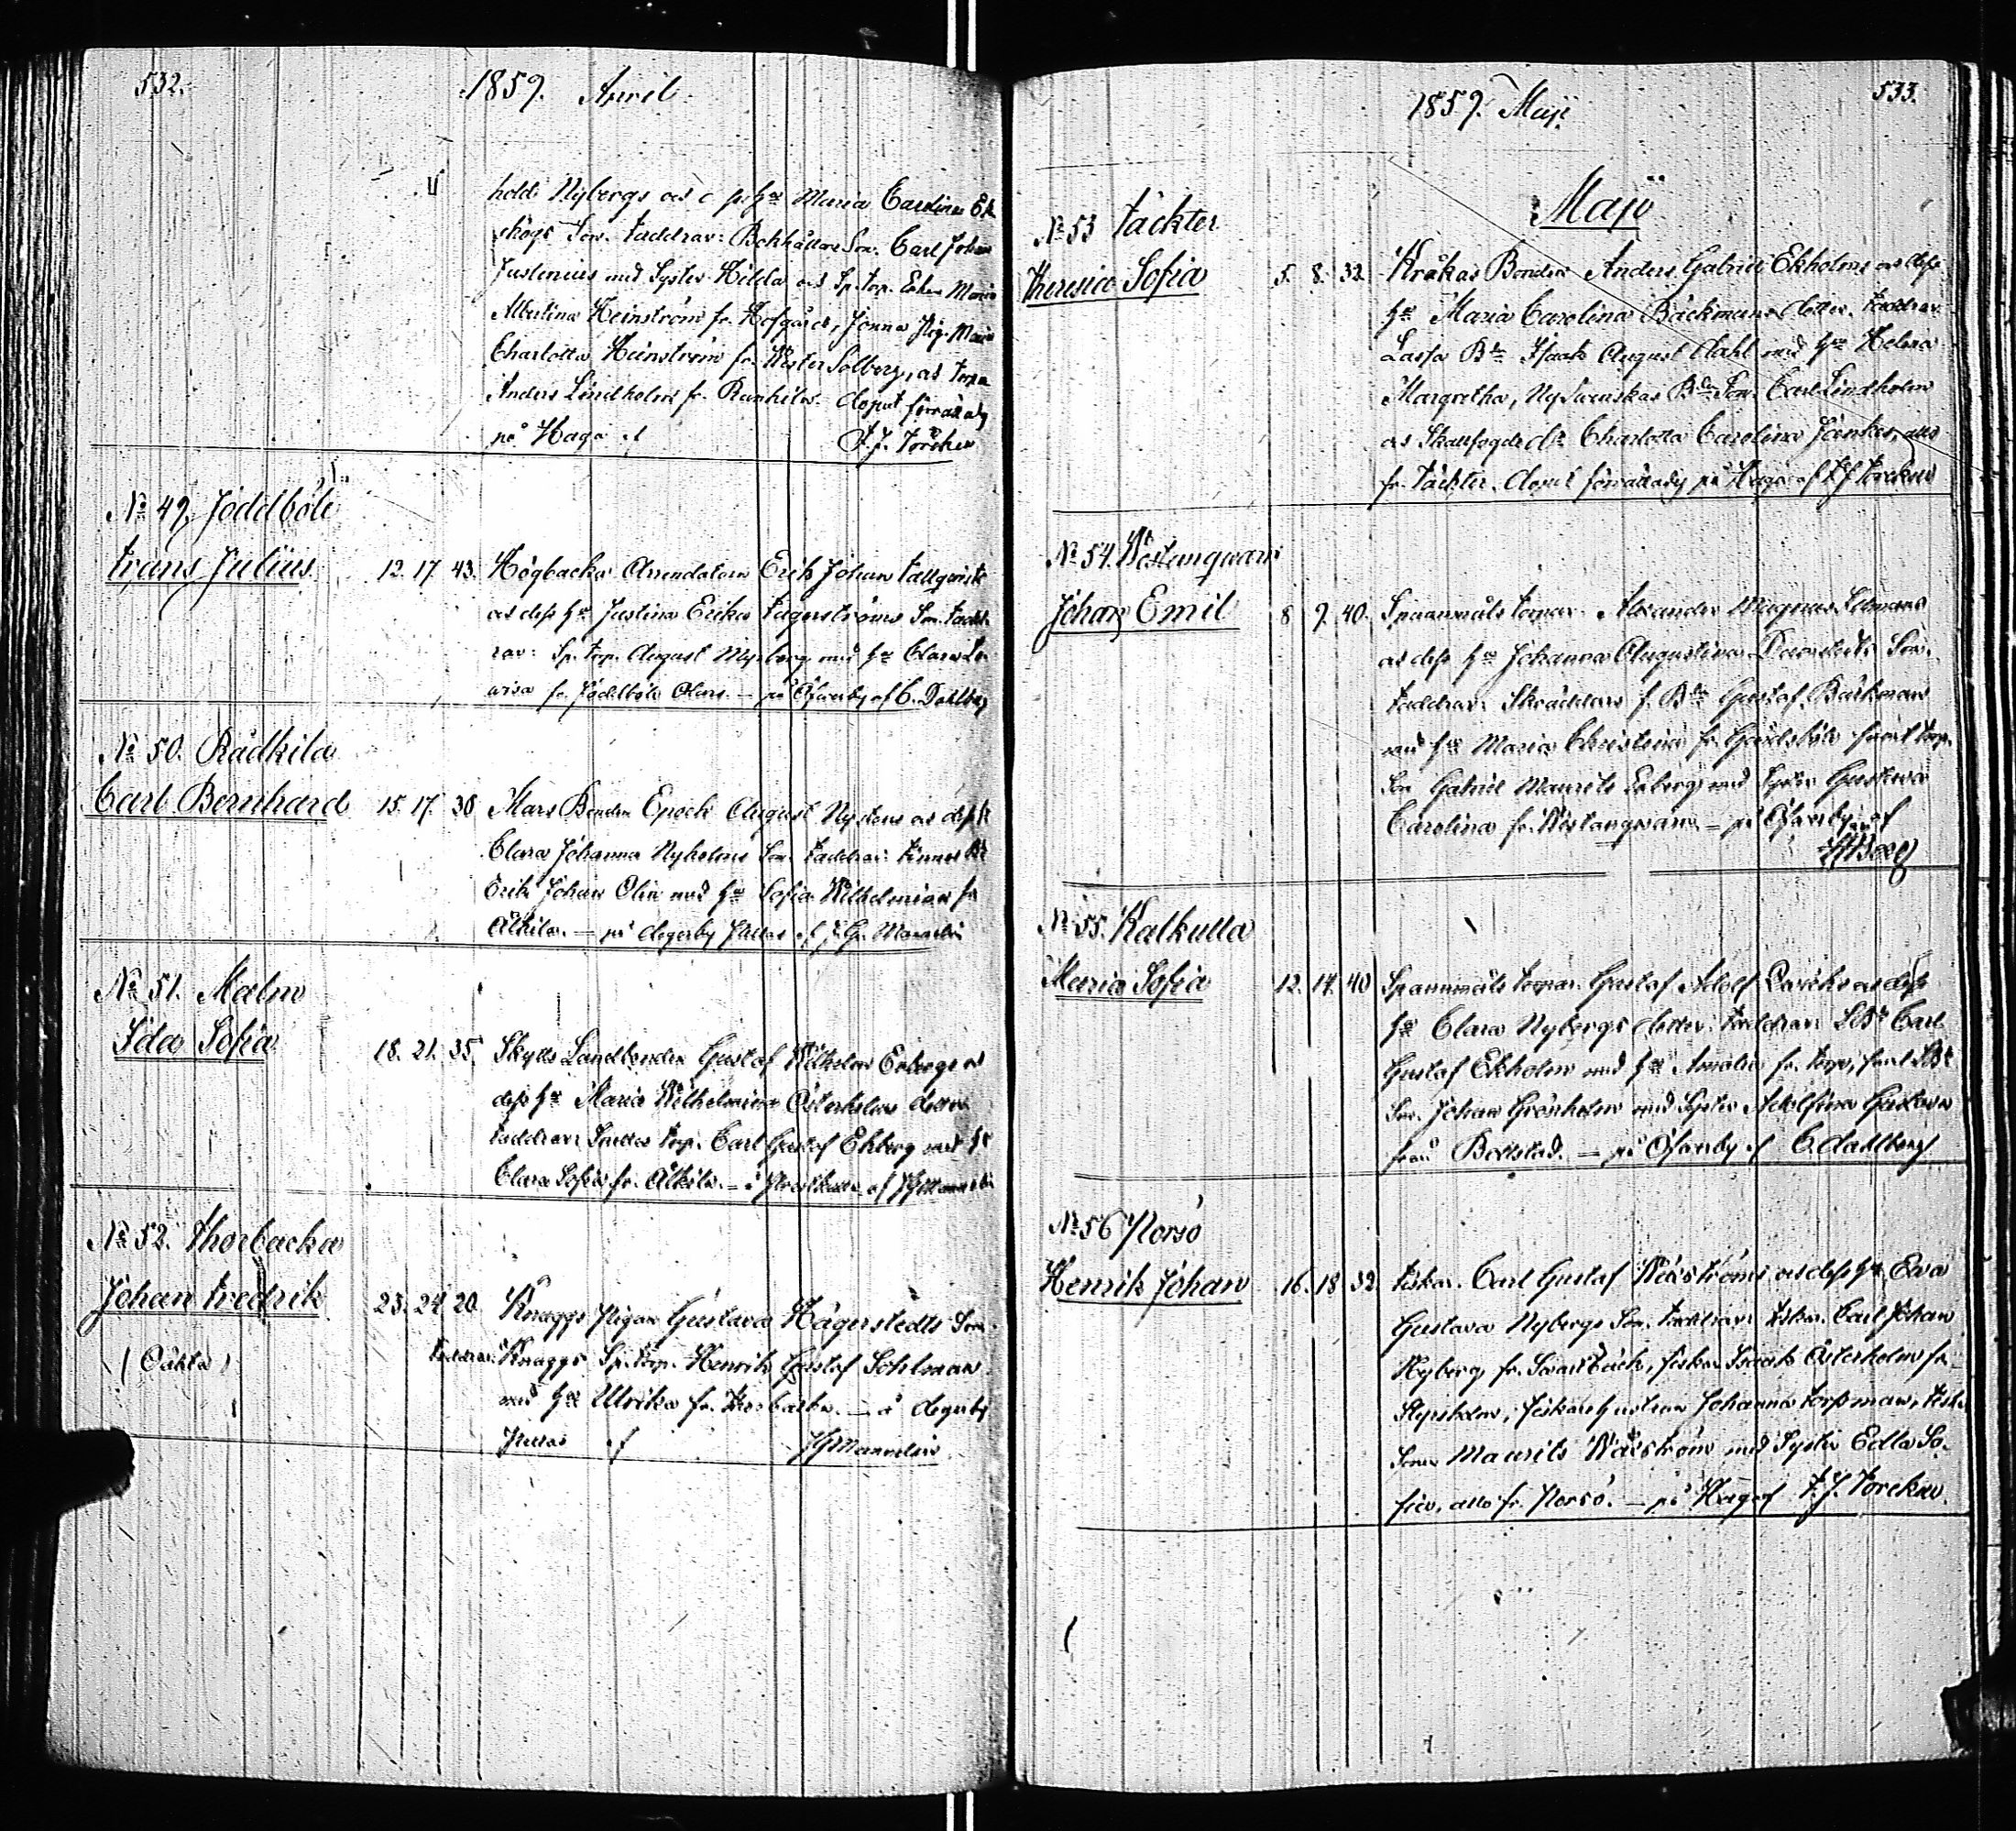 532.
1859. April
holds Nybergs och c p. Hu Maria Carolina Ek
skogs Son. Faddrar: Bokhållare Son. Carl Johan
Justinius med Syster Hilda och Sp. Torp. Enkan Maria
Albertina Heinström fr. Hofgård, Jonna Pig. Maria
Charlotta Heinström fr. Wester Solberg, och Torp.
Anders Lindholm fr. Rankila. Doput förrättadg
på Haga af F. J. Torckn
No 49. Joddböle
Frans Julius. 12. 17. 43. Högbacka Arrendatorn Erik Johan Tallqvists
och dess Hu Justina Erika Fagerströms Son. Fadd-
rar: Sp. Torp. August Nyberg med Hu Clara Lo-
visa fr. Joddböle Olars. – på Ofvanby af C. Dahlberg
No 50. Rådkila
Carl Bernhard 15. 17. 30. Mars Bonden Enock August Nystens och dess Hu
Clara Johanna Nyholms Son. Faddrar: Finnas Bd
Erik Johan Olin med Hu Sofia Wilhelmina fr.
Ålkila. – på Degerby Gillas af J. G. Mannelin
No 51. Malm
Ida Sofia 18. 21. 35. Skytts Landbonden Gustaf Wilhelm Enbergs och
dess Hu Maria Wilhelmina Österholms Dotter
Faddrar: Torp. Carl Gustaf Ekberg med Hu
Clara Sofia fr. Ålkila. – af JGMannelin
No 52. Thorbacka
Johan Fredrik 23. 24. 20. Knaggs Pigan Gustava Hägerstedts Son.
(Oäkta) Faddrar: Knaggs Sp. Torp. Henrik Gustaf Sohlman
med Hu Ulrika fr. Thorbacka. – å Degerby
Gillas af JGMannelin
533.
1859. Maji
Maji
No 53 Täckter
Theresia Sofia 5. 8. 32. Kråkas Bonden Anders Gabriel Ekholms och dess
Hu Maria Carolina Bäckmans dotter. Faddrar
Lassa Bde Isaak August Dahl med Hu Helena
Margretha, Ny Svenskas Bde Son Carl Lindholm
och Skallfogde Dr Charlotta Carolina Jänkes, alla
fr. Täckter. Doput förrättadg på Haga af F J Torckn
No 54. Westanqwarn
Johan Emil 8. 9. 40. Spannmåls torpar. Alexander Magnus Lohmans
och dess Hu Johanna Augustina Dannstedts Son.
Faddrar: Skräddare f. Bde Gustaf Bäckman
med Hu Maria Christina fr. Gårdsböle samt Torp.
Son Gabriel Maurits Enberg med Syster Gustava
Carolina fr. Westanqwarn – på Ofvanby af
No 55. Kalkulla
Maria Sofia 12. 14. 40. Spannmåls torpar. Gustaf Adolf och dess
Hu Clara Nybergs dotter. Faddrar: LBd Carl
Gustaf Ekholm med Hu Amalia fr. Torp, samt LBd
Son Johan Grönholm med Syster Adolfina Gustava
från Bollstad. – på Ofvanby af C. Dahlberg
No 56 Norsö
Henrik Johan 16. 18. 32. Fiskar. Carl Gustaf Wikströms och dess Hu Eva
Gustava Nybergs Son. Faddrar: Fiskar. Carl Johan
Nyberg fr. Svartbäck, fiskar Isaak Österholm fr.
fiskare hustrun Johanna Forssman, Fisk.
Sonen Maurits Wikström med Syster Edla So-
fia, alla fr. Norsö. – på Haga af F. J. Torckn